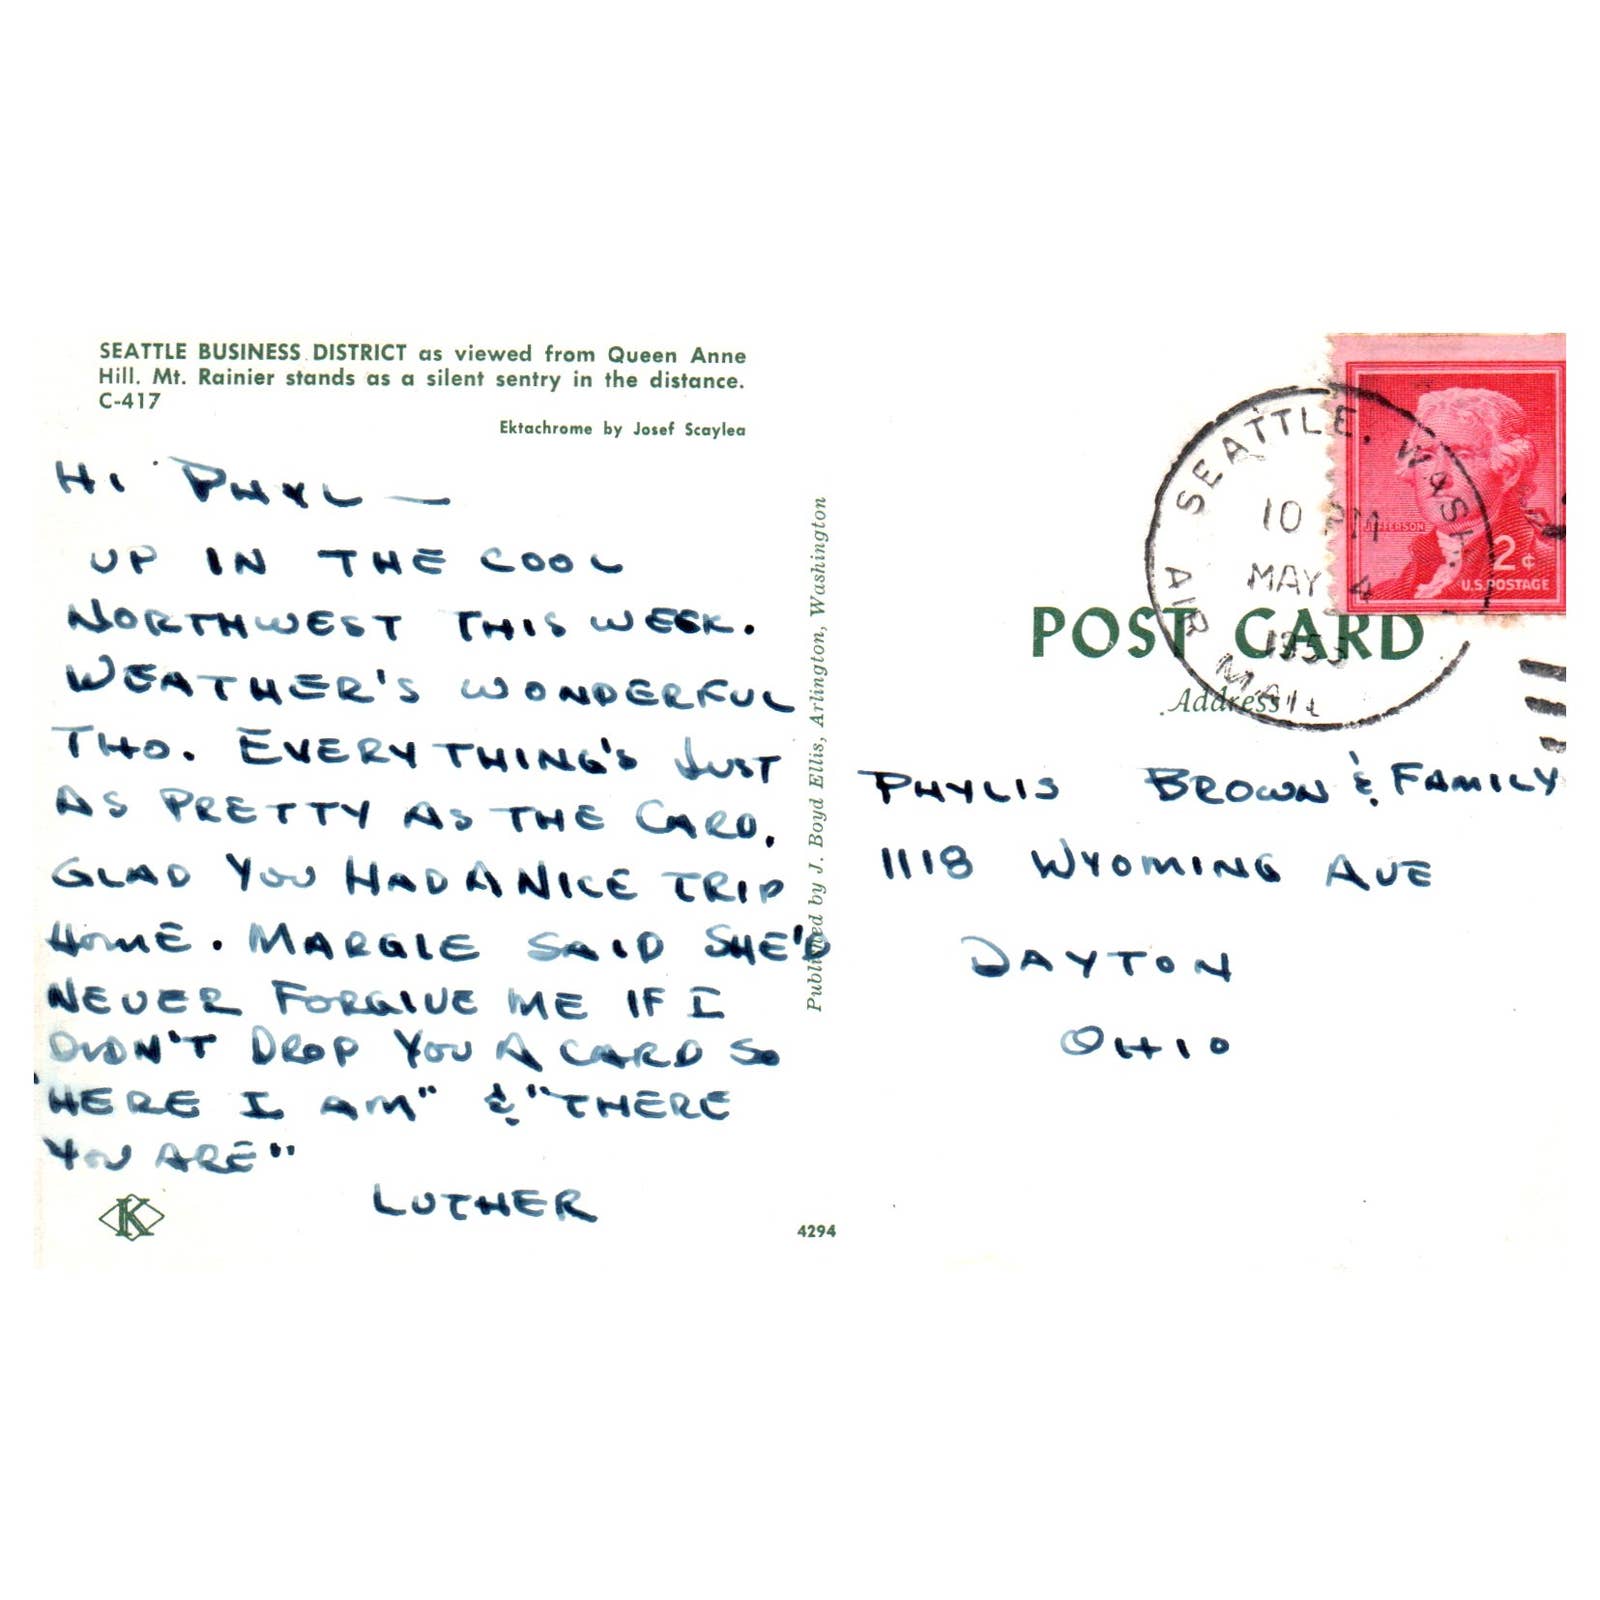 SEATTLE BUSINESS DISTRICT as viewed from Queen Anne
Hill. Mt. Rainier stands as a silent sentry in the distance.
C-417
Ektachrome by Josef Scaylea
HI PHYL —
UP IN THE COOL
NORTHWEST THIS WEEK.
WEATHER'S WONDERFUL
THO. EVERYTHING'S JUST
AS PRETTY AS THE CARD.
GLAD YOU HAD A NICE TRIP
HOME. MARGIE SAID SHE'D
NEVER FORGIVE ME IF I
DIDN'T DROP YOU A CARD SO
"HERE I AM" & "THERE
YOU ARE"
LUTHER
K
4294
Published by J. Boyd Ellis, Arlington, Washington
SEATTLE, WASH.
10 PM
MAY 4
AIR MAIL
JEFFERSON
2¢
U.S. POSTAGE
POST CARD
Address
PHYLIS BROWN & FAMILY
1118 WYOMING AVE
DAYTON
OHIO